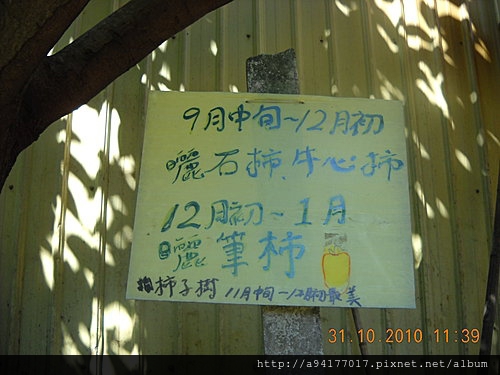 9月中旬~12月初
曬石柿、牛心柿
12月初~1月
曬筆柿
拍柿子樹 11月中旬~12月初最美
31.10.2010 11:39
http://a94177017.pixnet.net/album